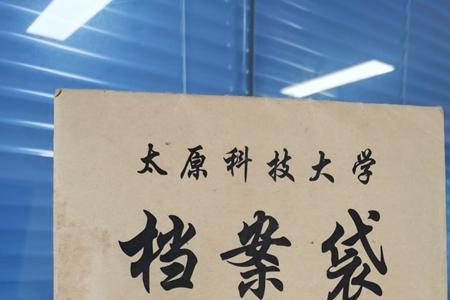 太原科技大学
档案袋